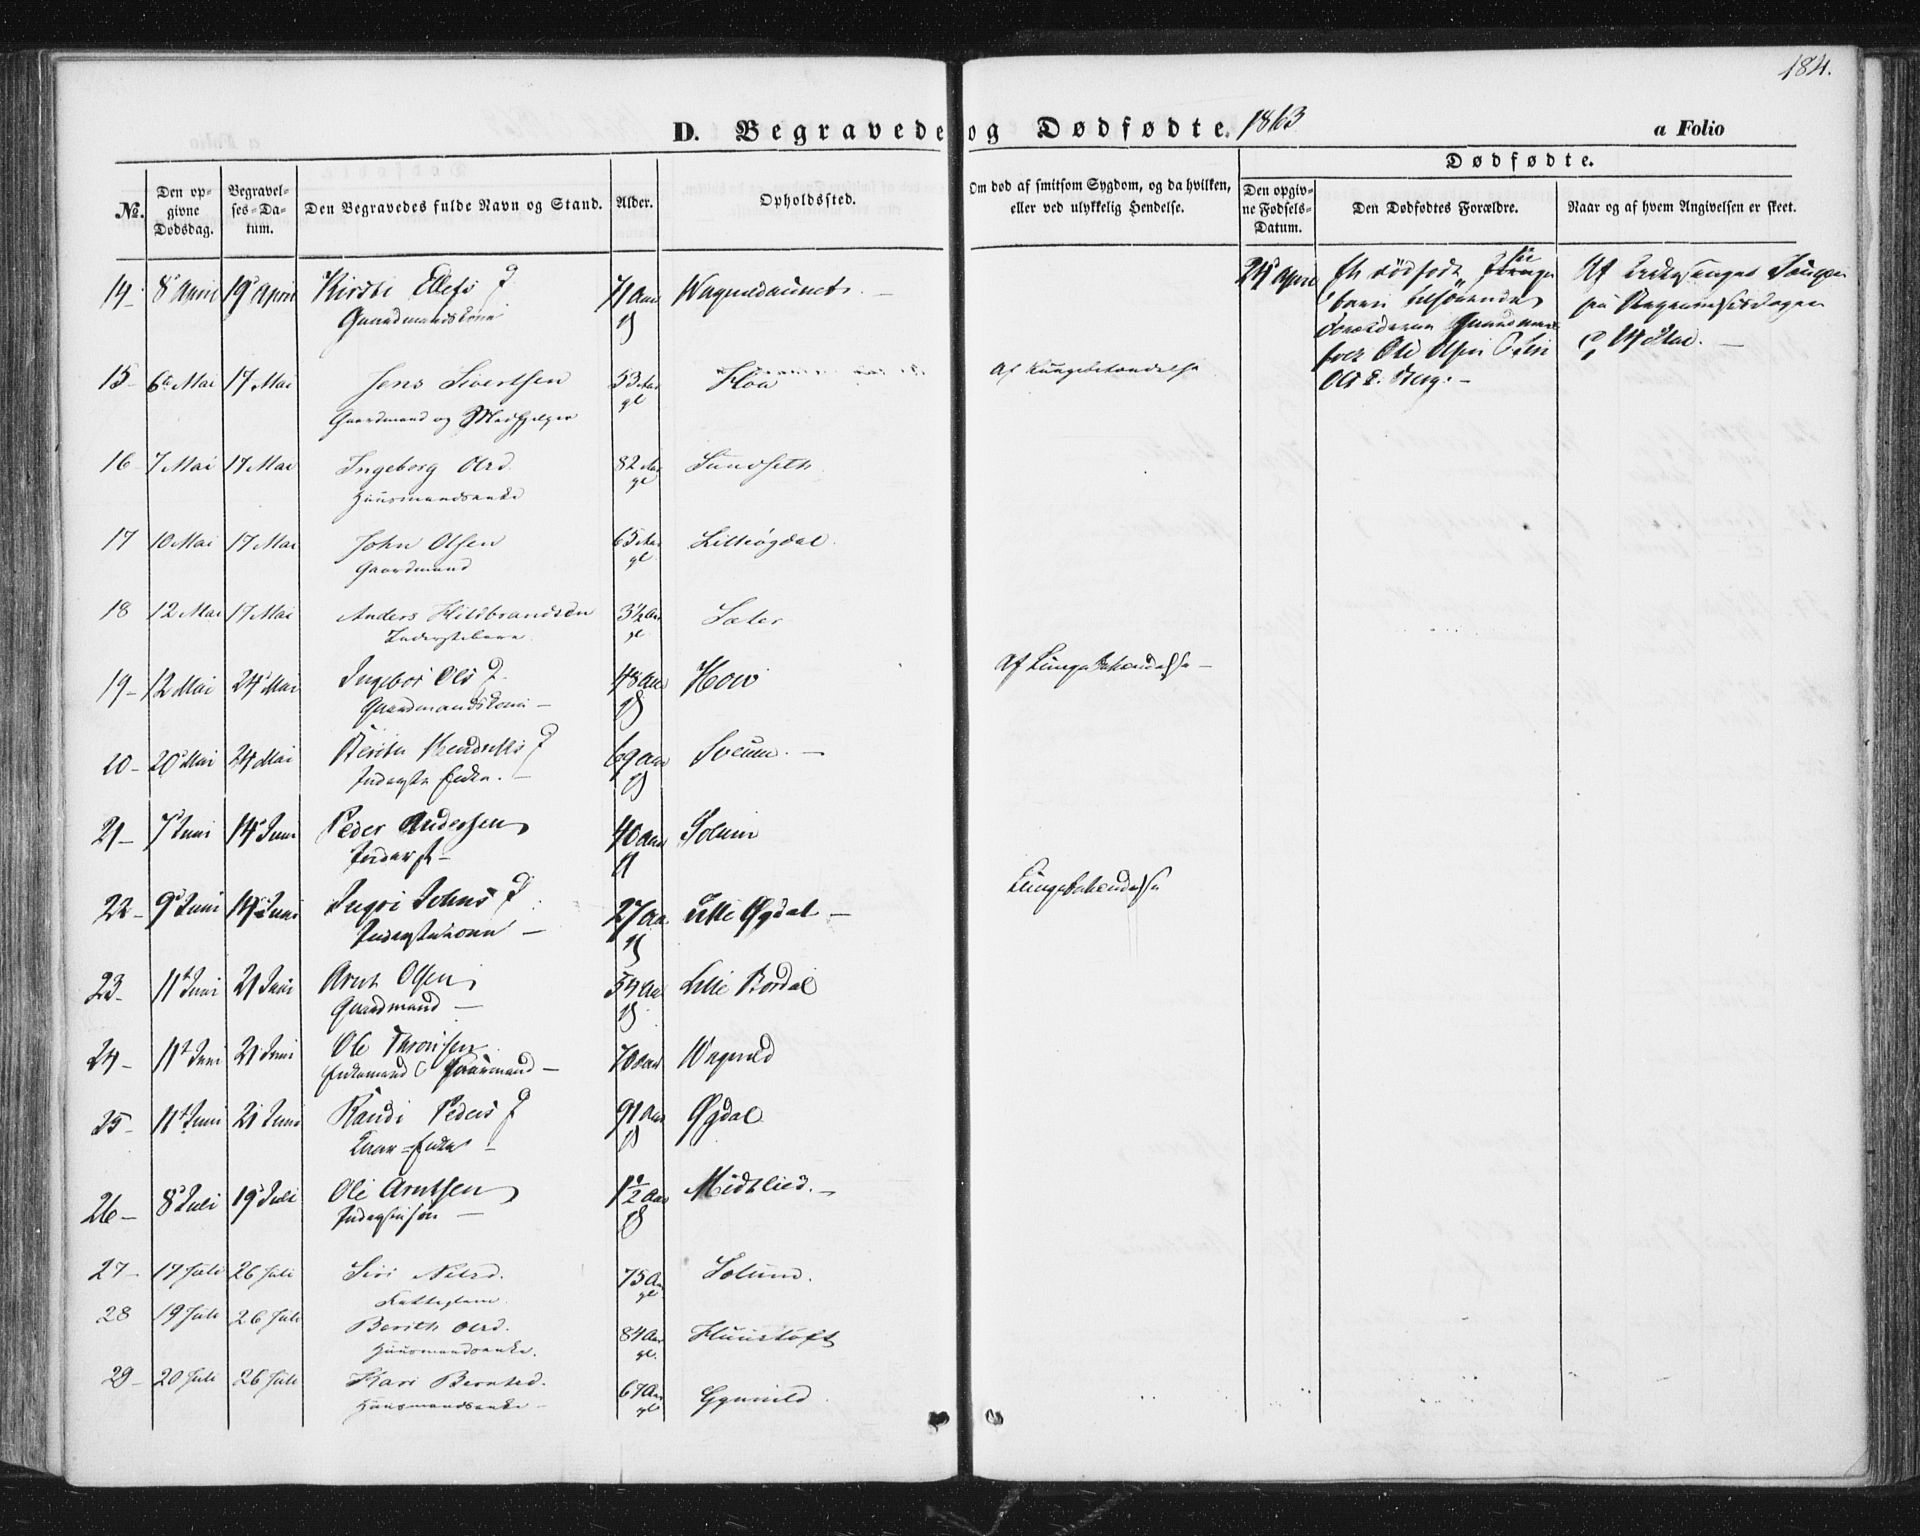 184.
D. Begravede og Dødfødte. 1863
a Folio
Dødfødte.
No.
Den opgivne Dødsdag.
Begravelses-Datum.
Den Begravedes fulde Navn og Stand.
Alder.
Opholdssted.
Om død af smitsom Sygdom, og da hvilken, eller ved ulykkelig Hendelse.
Den opgivne Fødsels-Datum.
Den Dødfødtes Forældre.
Naar og af hvem Angivelsen er skeet.
14- 8 April 19 April Kirsti Ellefs D 71 Aar Wognildaunet. -
Gaardmandskone gl
24 April
15- 6 Mai 17 Mai Jens Sivertsen 53 Aar Floa Af Lungebetændelse
Gaardmand og Medhjelper gl
16 7 Mai 17 Mai Ingeborg Olsd. 82 Aar Sundseth
Huusmandsenke gl
17 10 Mai 17 Mai John Olsen 65 Aar Lilleøgdal.
Gaardmand gl.
18 12 Mai 17 Mai Anders Hildbrandsen 3½ Aar Sæter
Inderstebarn. gl.
19- 12 Mai 24 Mai Ingebor Ols D. 48 Aar Hov Af Lungebetændelse -
Gaardmandskone - gl
20- 20 Mai 24 Mai Berit Hendriks D 69 Aar Solum. -
Inderste Enke. - gl
21- 7 Juni 14 Juni Peder Andersen 40 Aar Solum
Inderst - gl
22- 9 Juni 14 Juni Ingri Johns D 27 Aar Lille Øgdal - Lungebetændelse
Inderstekone - gl
23- 11 Juni 21 Juni Arnt Olsen 54 Aar Lille Bordal
Gaardmand - gl
24- 11 Juni 21 Juni Ole Thronsen 70 Aar Wognild
Enkemand Gaardmand -
25- 11 Juni 21 Juni Randi Peders D 91 Aar Øgdal
Enke - gl
26- 8 Juli 19 Juli Ole Arntsen 1½ Aar Midtlied. -
- gl
27- 17 Juli 26 Juli Siri Nilsd. 75 Aar Solum.
Fattiglem. gl.
28 19 Juli 26 Juli Berith Olsd. 84 Aar Huustoft
Huusmandsenke. gl.
29- 20 Juli 26 Juli Kari Berntsd. 67 Aar Gynnild
Huusmandsenke - gl